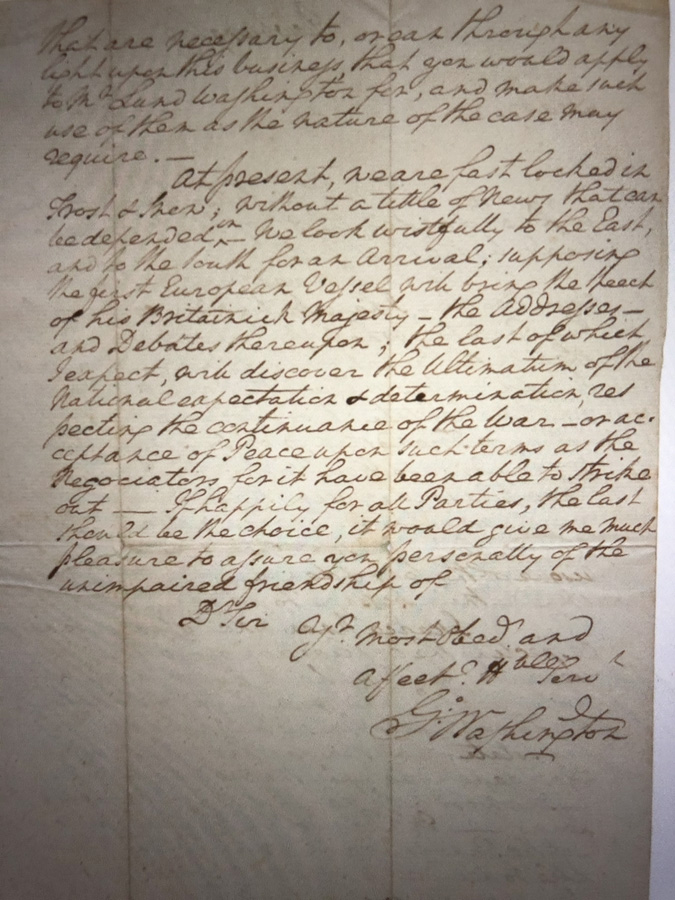 that are necessary to, or can through any
light upon this business, that you would apply
to Mr. Lund Washington for, and make such
use of them as the nature of the case may
require. —
At present, we are fast locked in
Frost & Snow; without a tittle of News that can
be depended on — We look wistfully to the East,
and to the South for an Arrival; supposing
the first European Vessel will bring the Speech
of his Britainick Majesty — the Addresses —
and Debates thereupon; the last of which
I expect, will discover the Ultimatum of the
National expectation & determination, res
pecting the continuance of the War — or ac-
ceptance of Peace upon such terms as the
Negociators for it have been able to strike
out — If happily for all Parties, the last
should be the choice, it would give me much
pleasure to assure you personally of the
unimpaired friendship of
Dr Sir Yr. most Obedt. and
Affecte. Hble Servt
Go: Washington